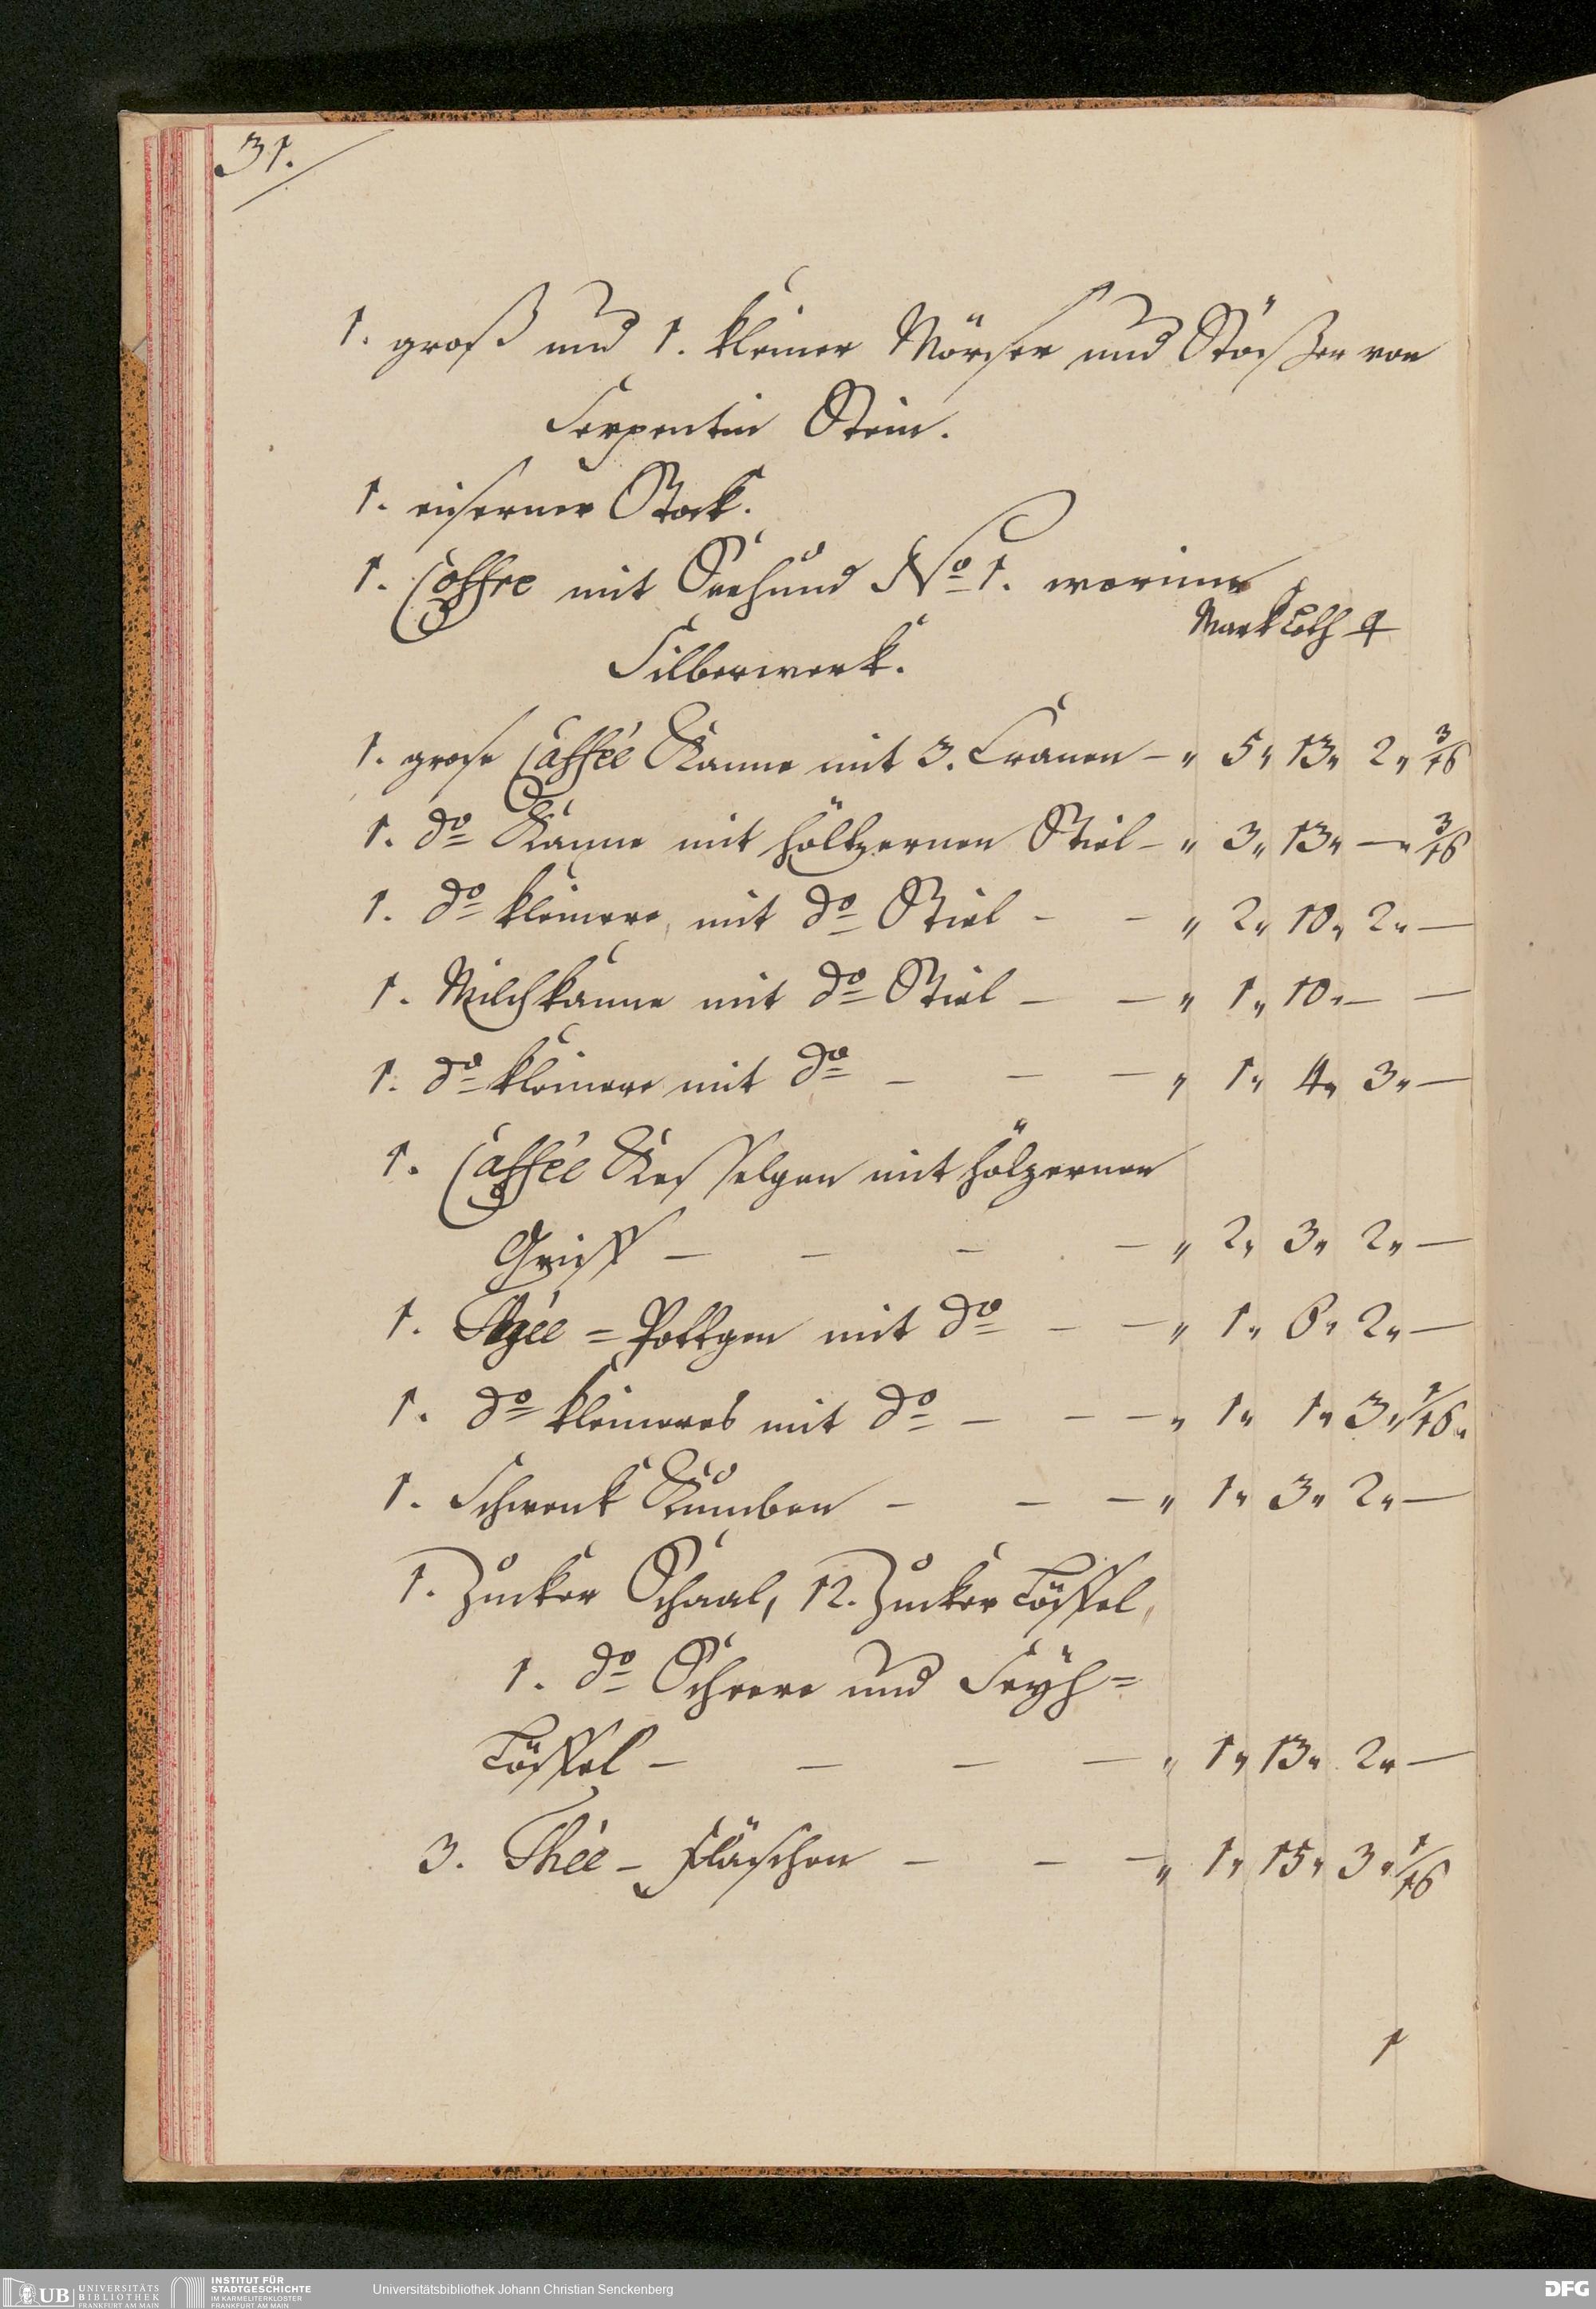 31.
1. groß und 1. kleiner Mörser und Stößer von
Serpentin Stein.
1. eiserner Stock.
1. Coffre mit Seehund No 1. worinn
Mark Loth q
Silberwerk.
1. grose Caffée Kanne mit 3. Cranen — „ 5„ 13„ 2„ 3/16
1. do Kanne mit höltzernen Stiel — „ 3„ 13„ —„ 3/16
1. do kleinere mit do Stiel — — „ 2„ 10„ 2„ —
1. Milchkanne mit do Stiel — — „ 1„ 10„ — —
1. do kleinere mit do — — — „ 1„ 4„ 3„ —
1. Caffée Kesselgen mit hölzernen
Griff — — — — „ 2„ 3„ 2„ —
1. Thée = Pottgen mit do — — „ 1„ 6„ 2„ —
1. do kleineres mit do — — — „ 1„ 1„ 3„ 1/16„
1. Schwenk Kumben — — — „ 1„ 3„ 2„ —
1. Zucker Schaal, 12. Zucker Löffel,
1. do Scheere und Seyh=
Löffel — — — — „ 1„ 13„ 2„ —
3. Thée — Fläschen — — — „ 1„ 15„ 3„ 1/16
1
UB UNIVERSITÄTS
BIBLIOTHEK
FRANKFURT AM MAIN
INSTITUT FÜR
STADTGESCHICHTE
IM KARMELITERKLOSTER
FRANKFURT AM MAIN
Universitätsbibliothek Johann Christian Senckenberg
DFG